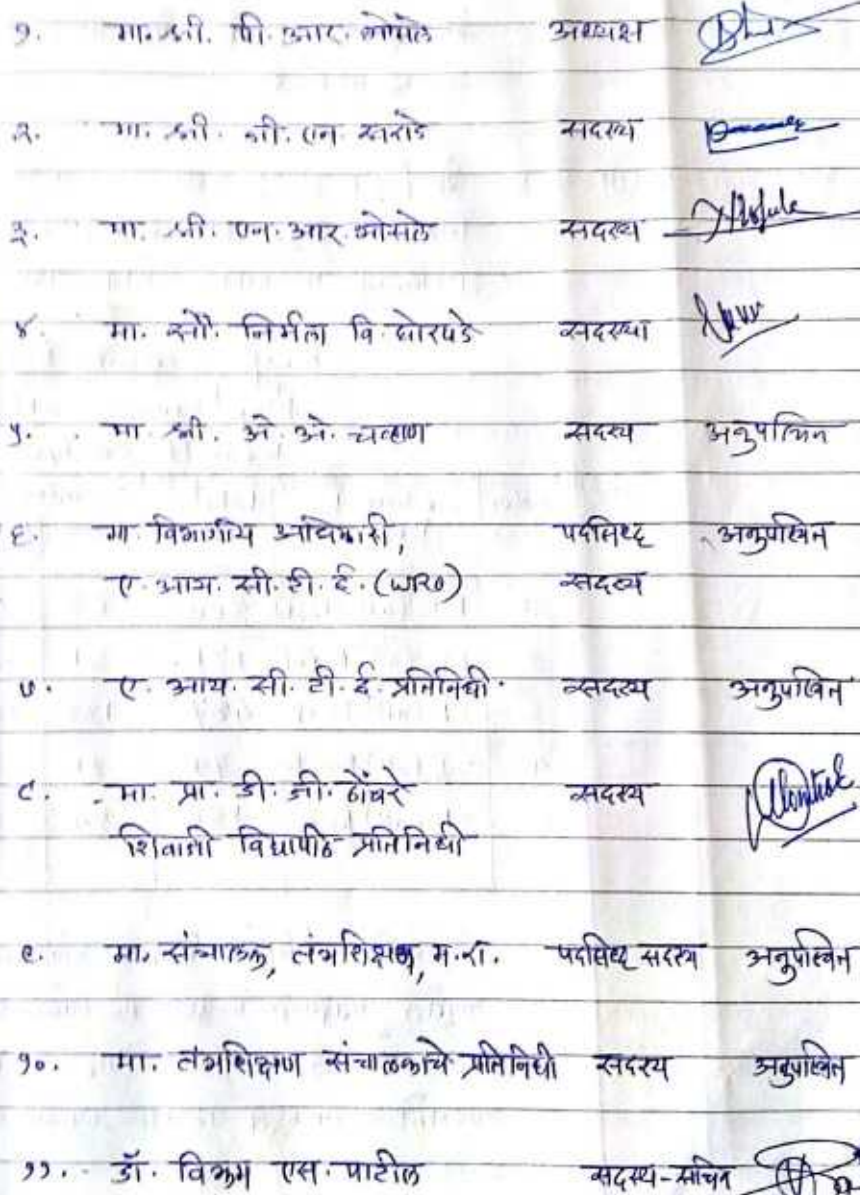 १. मा. श्री. पी. आर. भोसले अध्यक्ष
२. मा. श्री. जी. एन. सरोडे सदस्य
३. मा. श्री. एन. आर. भोसले सदस्य
४. मा. सौ. निर्मला वि. घोरपडे सदस्या
५. मा. श्री. अे. अे. चव्हाण सदस्य अनुपस्थित
६. मा. विभागीय अधिकारी, पदसिध्द अनुपस्थित
ए. आय. सी. टी. ई. (WRO) सदस्य
७. ए. आय. सी. टी. ई. प्रतिनिधी. सदस्य अनुपस्थित
८. मा. प्रा. डी. जी. ठोंबरे सदस्य
शिवाजी विद्यापीठ प्रतिनिधी
९. मा. संचालक, तंत्रशिक्षण, म.रा. पदसिध्द सदस्य अनुपस्थित
१०. मा. तंत्रशिक्षण संचालकांचे प्रतिनिधी सदस्य अनुपस्थित
११. डॉ. विक्रम एस. पाटील सदस्य-सचिव